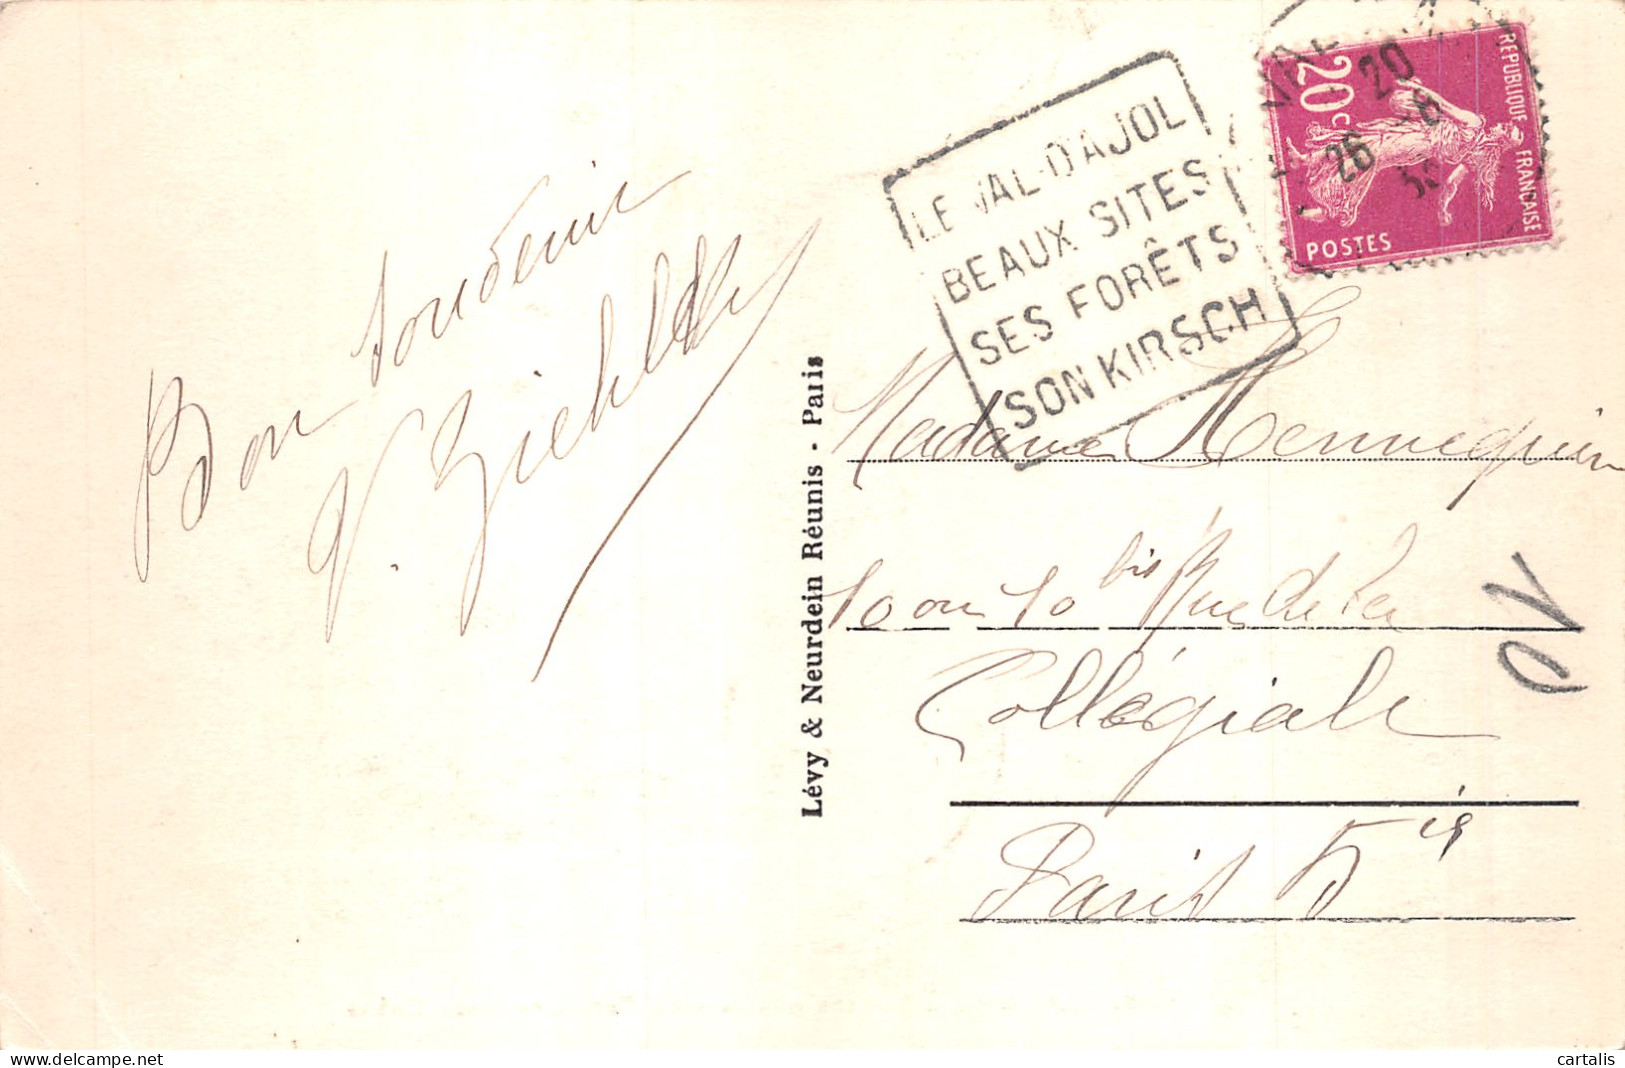 Bon souvenir
LE VAL-D'AJOL
BEAUX SITES
SES FORÊTS
SON KIRSCH
20c
REPUBLIQUE FRANÇAISE
POSTES
20
26 -8
Lévy & Neurdein Réunis - Paris
Madame Hennequin
10 ou 10 bis Rue de la
Collégiale
Paris 5
cartalis